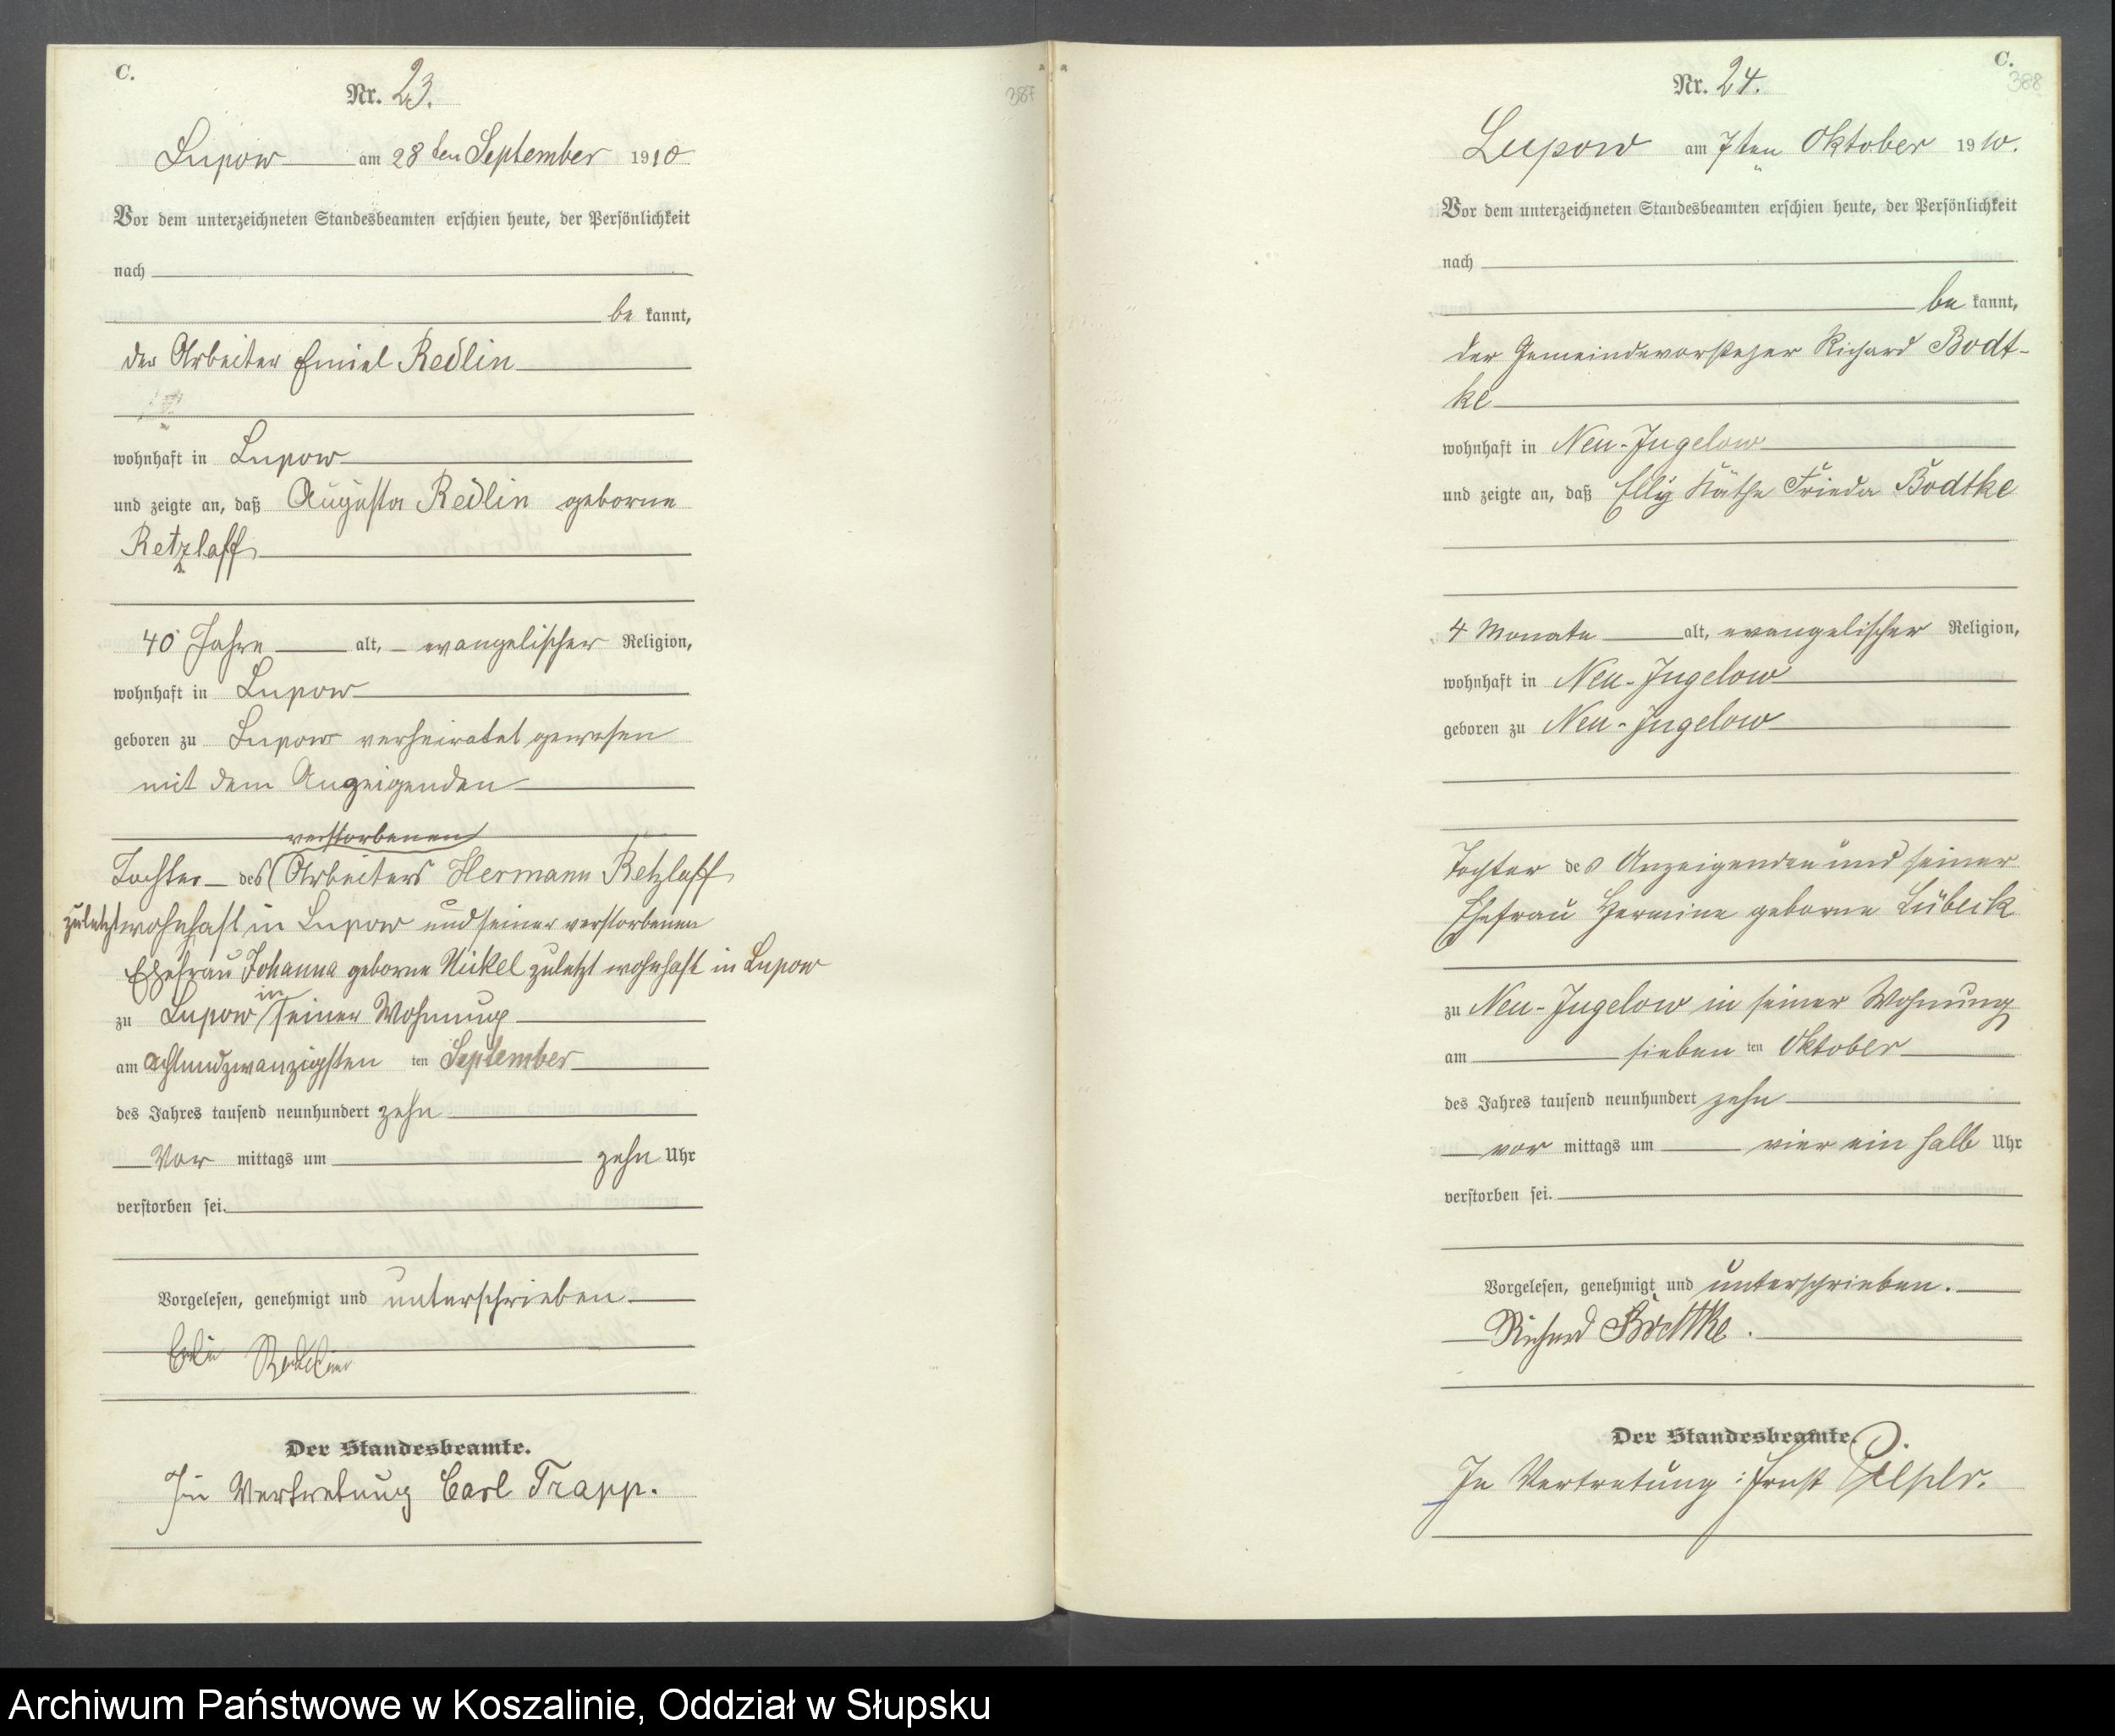 C.
Nr. 23.
387
Lupow am 28ten September 1910
Vor dem unterzeichneten Standesbeamten erschien heute, der Persönlichkeit
nach
be kannt,
der Arbeiter Emiel Redlin
wohnhaft in Lupow
und zeigte an, daß Augusta Redlin geborne
Retzlaff
40 Jahre alt, evangelischer Religion,
wohnhaft in Lupow
geboren zu Lupow verheiratet gewesen
mit dem Anzeigenden
verstorbenen
Tochter des Arbeiters Hermann Retzlaff
zuletzt wohnhaft in Lupow und seiner verstorbenen
Ehefrau Johanna geborne Nickel zuletzt wohnhaft in Lupow
in
zu Lupow seiner Wohnung
am achtundzwanzigsten ten September
des Jahres tausend neunhundert zehn
Vor mittags um zehn Uhr
verstorben sei.
Vorgelesen, genehmigt und unterschrieben
Der Standesbeamte.
In Vertretung Carl Trapp.
C.
388
Nr. 24.
Lupow am 7ten Oktober 1910.
Vor dem unterzeichneten Standesbeamten erschien heute, der Persönlichkeit
nach
be kannt,
der Gemeindevorsteher Richard Bodt-
ke
wohnhaft in Neu-Jugelow
und zeigte an, daß Elly Käthe Frieda Bodtke
4 Monate alt, evangelischer Religion,
wohnhaft in Neu-Jugelow
geboren zu Neu-Jugelow
Tochter des Anzeigenden und seiner
Ehefrau Hermine geborne Lübeck
zu Neu-Jugelow in seiner Wohnung
am sieben ten Oktober
des Jahres tausend neunhundert zehn
vor mittags um vier ein halb Uhr
verstorben sei.
Vorgelesen, genehmigt und unterschrieben.
Richard Bodtke.
Der Standesbeamte.
In Vertretung: Ernst
Archiwum Państwowe w Koszalinie, Oddział w Słupsku